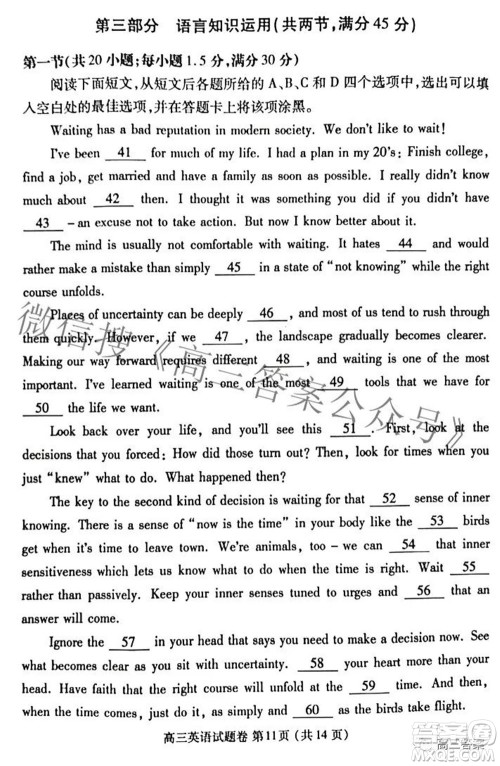 第三部分 语言知识运用(共两节,满分 45 分)
第一节(共 20 小题;每小题 1.5 分,满分 30 分)
阅读下面短文,从短文后各题所给的 A、B、C 和 D 四个选项中,选出可以填
入空白处的最佳选项,并在答题卡上将该项涂黑。
Waiting has a bad reputation in modern society. We don't like to wait!
I've been 41 for much of my life. I had a plan in my 20's: Finish college,
find a job, get married and have a family as soon as possible. I really didn't know
much about 42 then. I thought it was something you did if you didn't have
43 -an excuse not to take action. But now I know better.
The mind is usually not comfortable with waiting. It hates 44 and would
rather make a mistake than simply 45 in a state of "not knowing" while the right
course unfolds.
Places of uncertainty can be deeply 46 , and most of us tend to rush through
them quickly. However, if we 47 , the landscape gradually becomes clearer.
Making our way forward requires different 48 , and waiting is one of the most
important. I've learned waiting is one of the most 49 tools that we have for
50 the life we want.
Look back over your life, and you'll see this 51 . First, look at the
decisions that you forced: How did those turn out? Then, look for times when you
just "knew" what to do. What happened then?
The key to the second kind of decision is waiting for that 52 sense of inner
knowing. There is a sense of "now is the time" in your body like the 53 birds
get when it's time to leave town. We're animals, too- we can 54 that inner
sensitiveness which lets us know what to do when the time is right. Wait 55
rather than passively. Keep your inner senses tuned to urges and 56 that an
answer will come.
Ignore the 57 in your head that says you must make a decision now. See
what becomes clear as you sit with uncertainty. 58 your heart more than your
head. Trust that the right course will unfold at the 59 time. And then, when
the time comes, just do it, as 60 as the birds take to the sky.
高三英语试题卷 第11页 (共 14 页)
微信搜《高三答案公众号》
高三答案